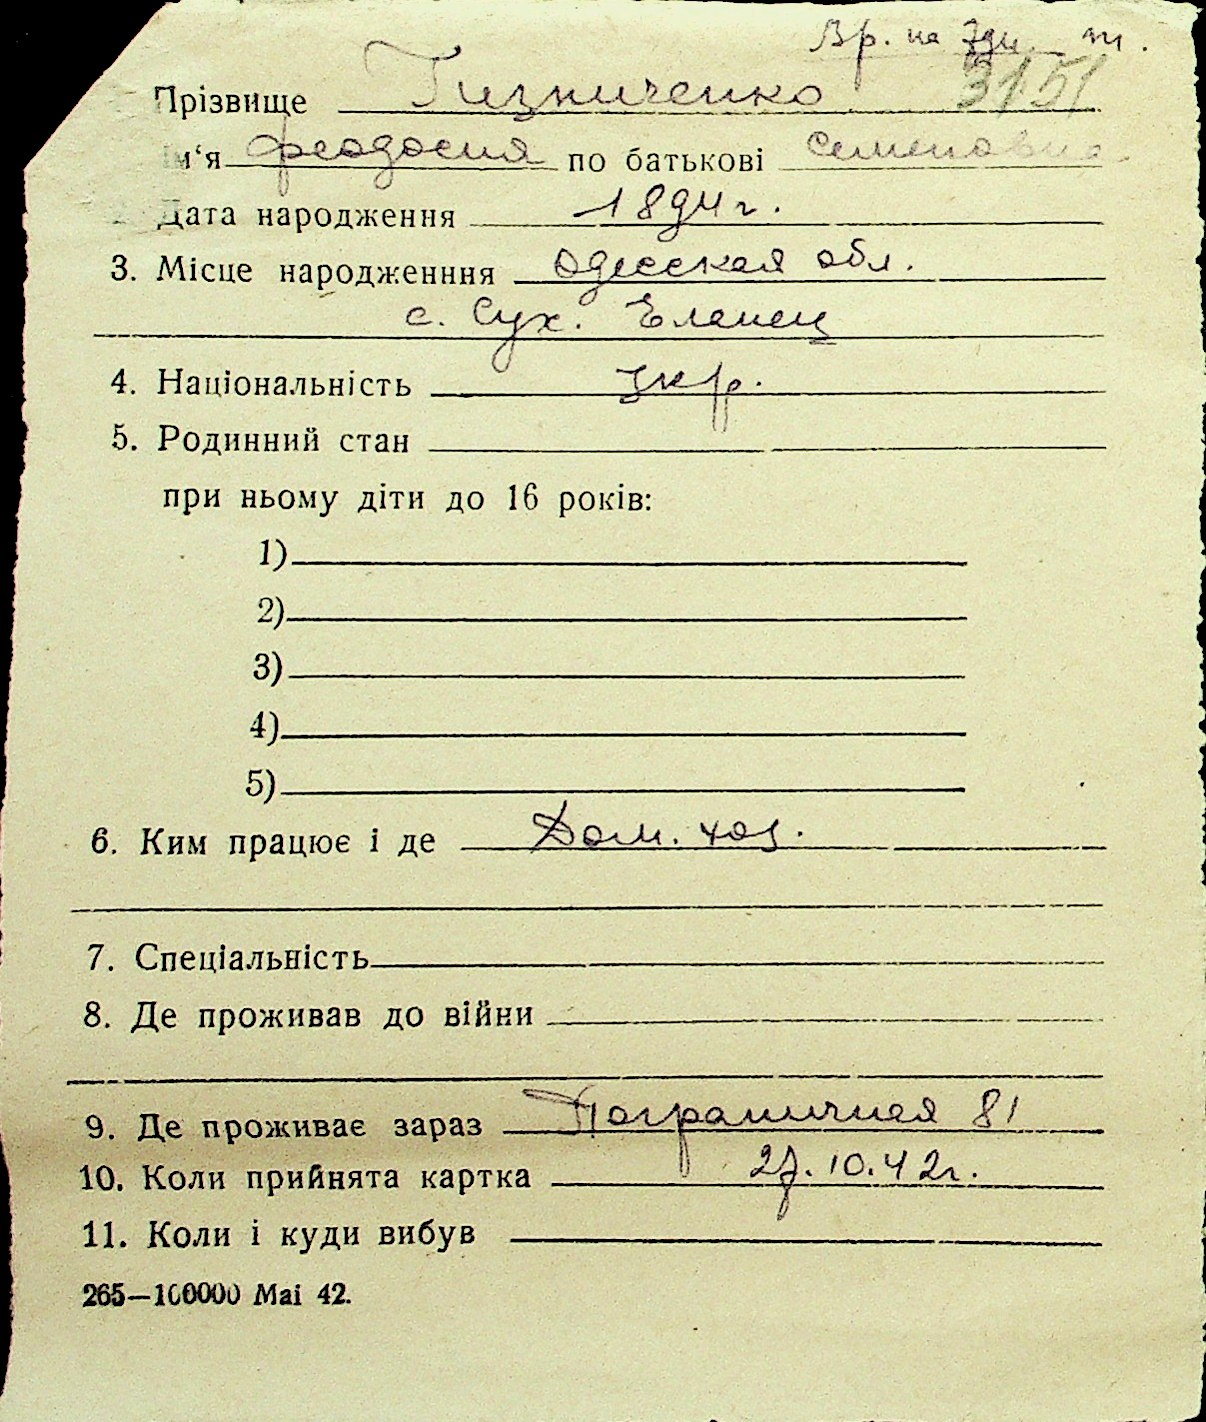 Вр. на 7 дн. m.
Прізвище Гизниченко 3151
Ім‘я Феодосия по батькові Семеновна
2. Дата народження 1894 г.
3. Місце народженння Одесская обл.
с. Сух. Еланец
4. Національність укр.
5. Родинний стан
при ньому діти до 16 років:
1)
2)
3)
4)
5)
6. Ким працює і де Дом. хоз.
7. Спеціальність
8. Де проживав до війни
9. Де проживає зараз Пограничная 81
10. Коли прийнята картка 27.10.42 г.
11. Коли і куди вибув
265—100000 Mai 42.